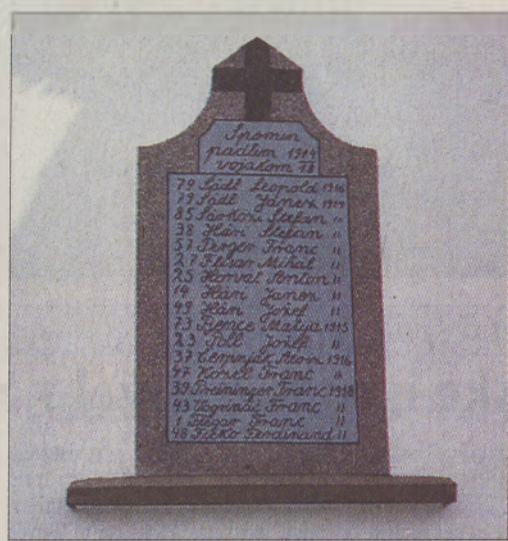 Spomin
padlim 1914
vojakom 18
79 Sadl Leopold 1914
79 Sadl Janez 1914
85 Šarkozi Štefan "
38 Hári Štefan "
57 Perger Franc "
27 Flisar Mihal "
25 Horvat Anton "
14 Hári Janez "
49 Hári Jožef "
73 Bence Matija 1915
23 Jožef "
37 Cemnják Alojz 1916
47 Kozel Franc "
39 Preininger Franc 1918
43 Vogrinčič Franc "
1 Flegar Franc "
48 Ficko Ferdinand "